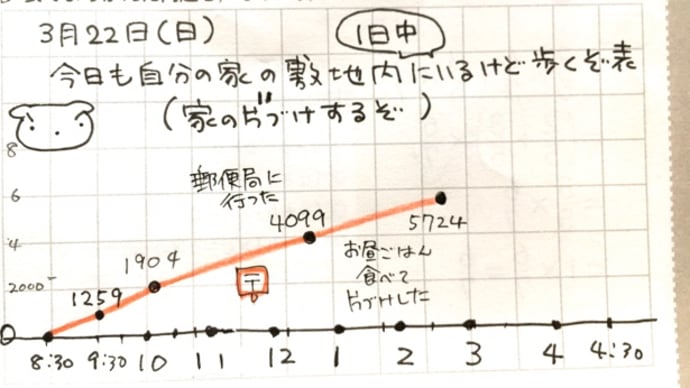 3月22日(日)
1日中
今日も自分の家の敷地内にいるけど歩くぞ表
(家の片づけするぞ)
8
6
4
2000
0
郵便局に
行った
1259
1904
4099
5724
〒
お昼ごはん
食べて
片づけした
8:30 9:30 10 11 12 1 2 3 4 4:30